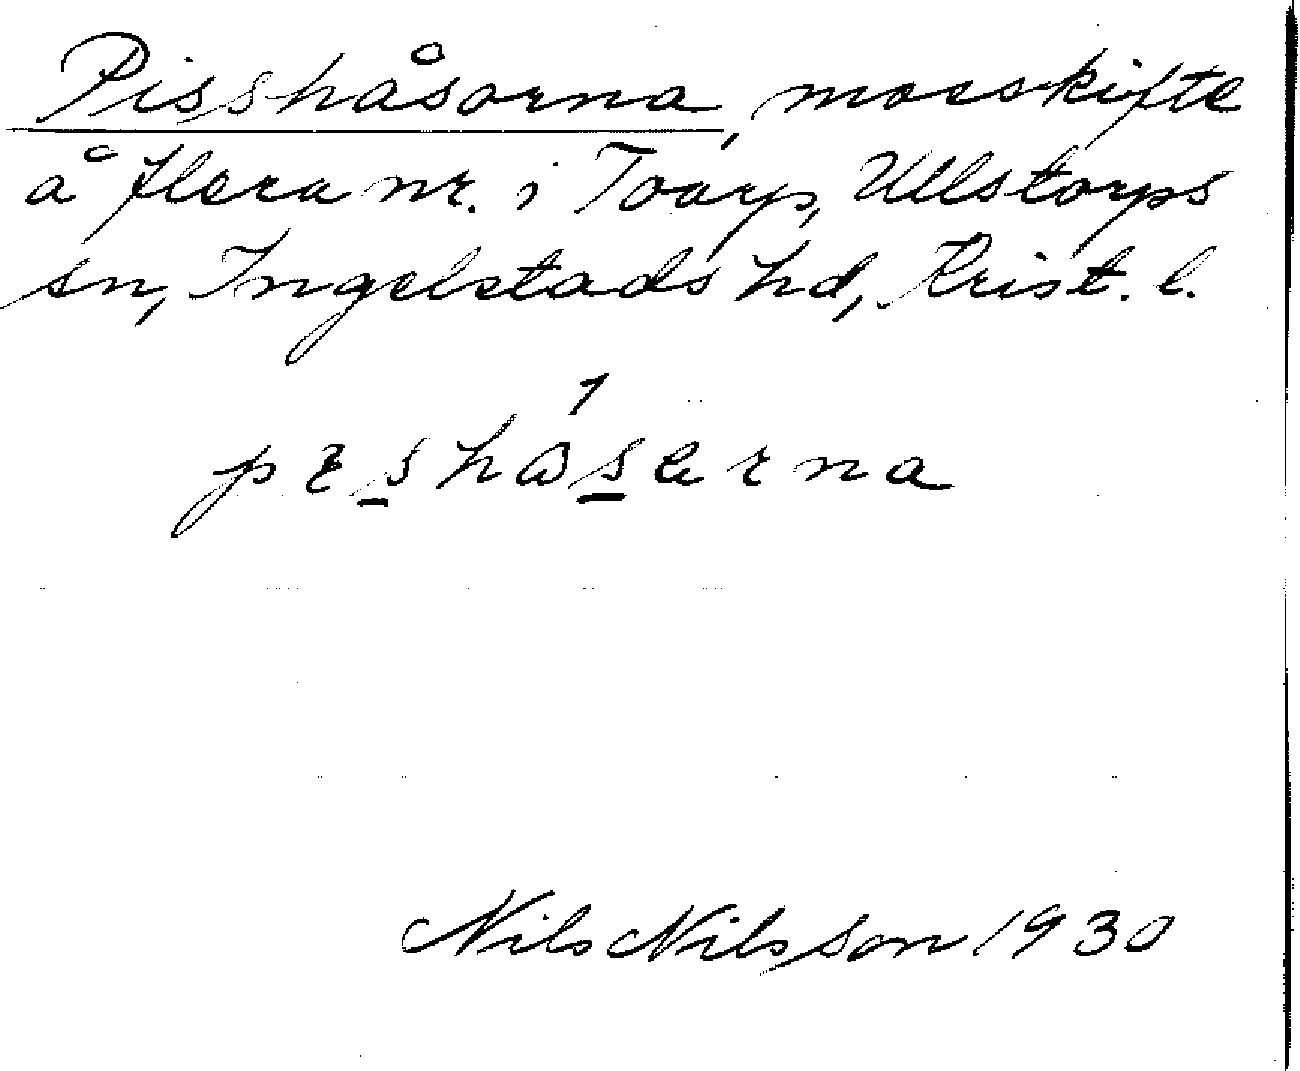 Pisshåsorna, mosskifte
å flera nr. i Toarp, Ullstorps
sn, Ingelstads hd, Krist. l.
Nils Nilsson 1930